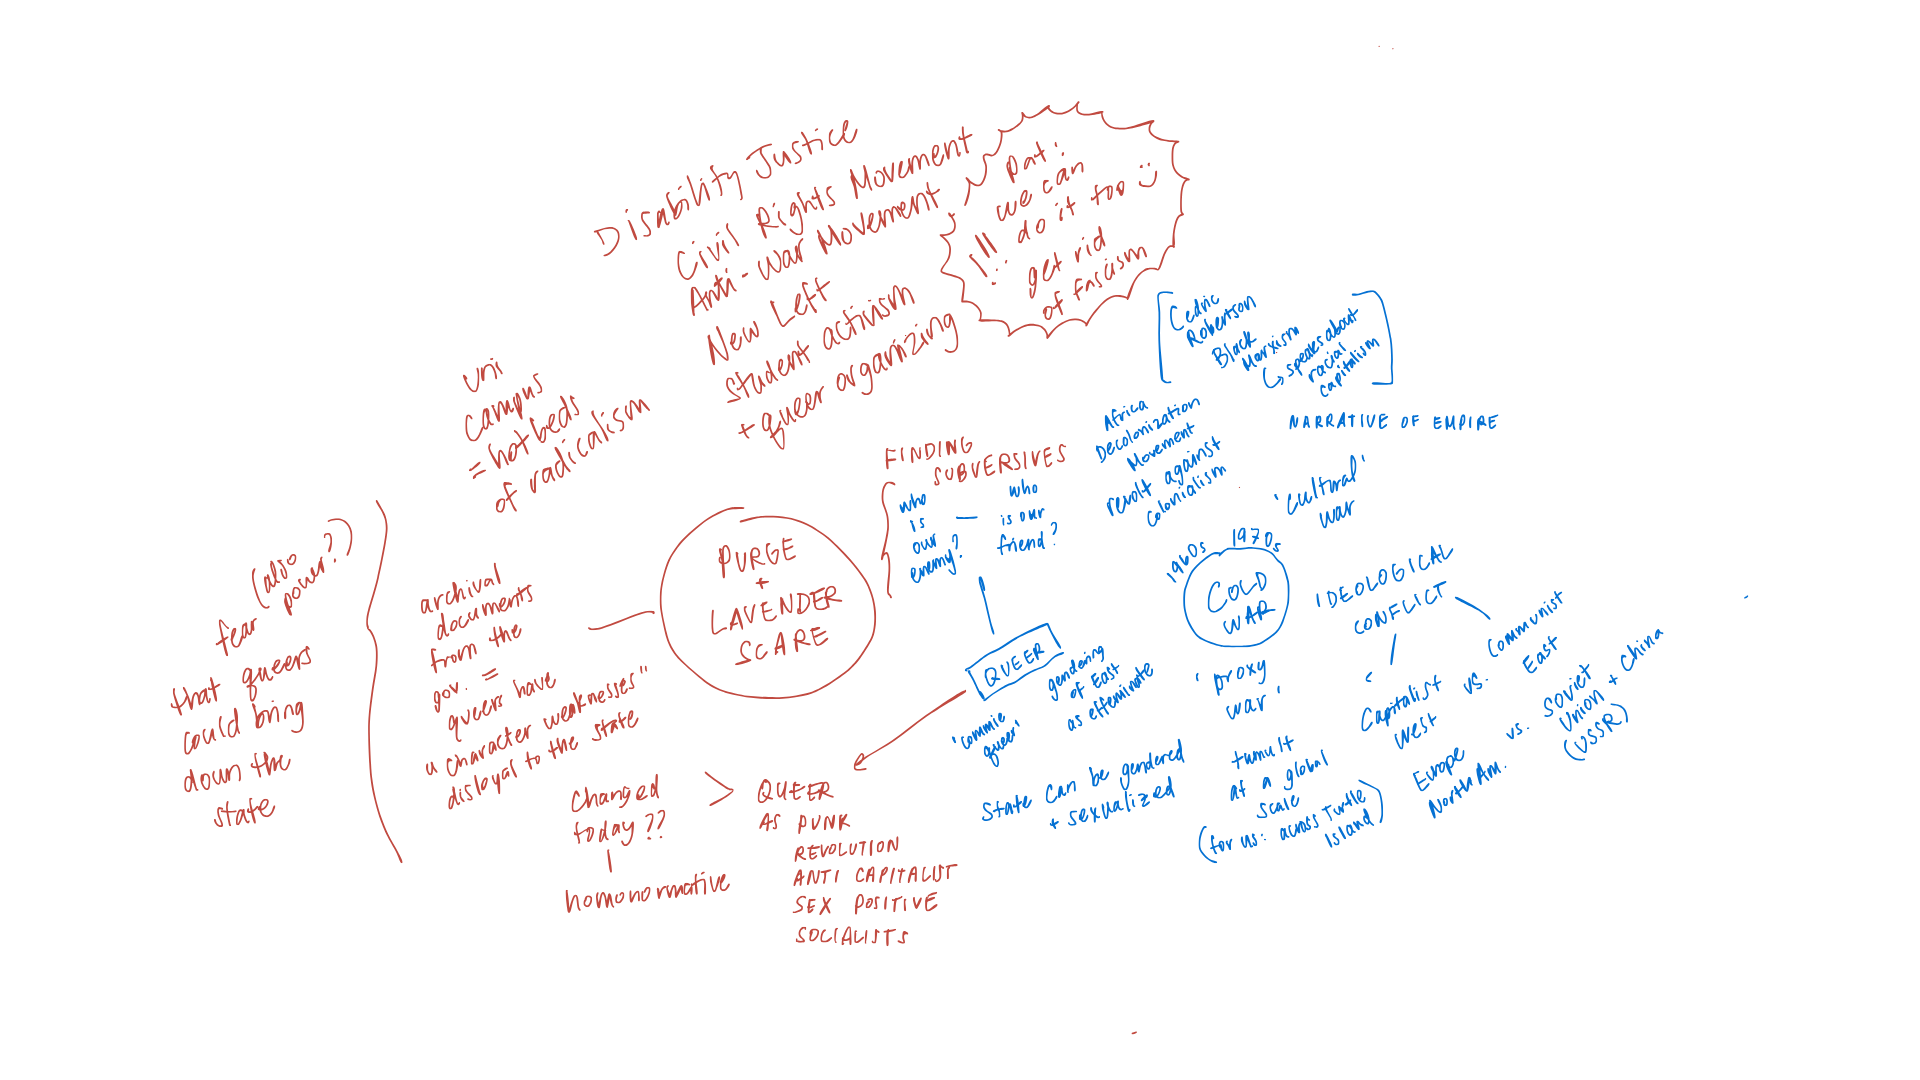 Disability Justice
Civil Rights Movement
Anti-War Movement
New Left
Student activism
+ queer organizing
pat:
we can
do it too :)
!!!
get rid
of fascism
Uni
campus
= hotbeds
of radicalism
(also
power?)
fear
that queers
could bring
down the
state
archival
documents
from the
gov. =
queers have
"character weaknesses"
disloyal to the state
PURGE
+
LAVENDER
SCARE
FINDING
SUBVERSIVES
who
is
our
enemy?
—
who
is our
friend?
QUEER
'commie
queer'
gendering
of East
as effeminate
State can be gendered
+ sexualized
changed
today??
homonormative
QUEER
AS PUNK
REVOLUTION
ANTI CAPITALIST
SEX POSITIVE
SOCIALISTS
[Cedric
Robertson
Black
Marxism
↳ speaks about
racial
capitalism]
NARRATIVE OF EMPIRE
Africa
Decolonization
Movement
revolt against
colonialism
'cultural'
war
1960s 1970s
COLD
WAR
'proxy
war'
tumult
at a global
scale
(for us: across Turtle
Island)
IDEOLOGICAL
CONFLICT
Capitalist
West
vs.
Communist
East
Europe
North Am.
vs.
Soviet
Union + China
(USSR)